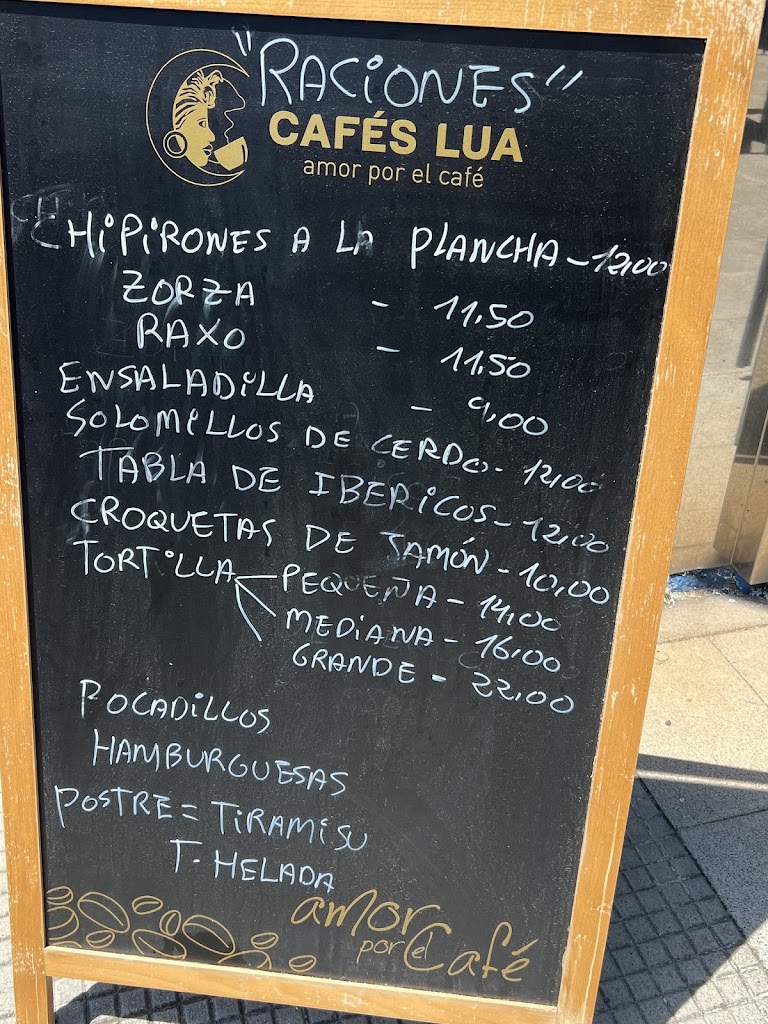 "RACIONES"
CAFÉS LUA
amor por el café
CHIPIRONES A LA PLANCHA - 12,00
ZORZA - 11,50
RAXO - 11,50
ENSALADILLA - 9,00
SOLOMILLOS DE CERDO - 12,00
TABLA DE IBERICOS - 12,00
CROQUETAS DE JAMÓN - 10,00
TORTILLA PEQUEÑA - 14,00
MEDIANA - 16,00
GRANDE - 22,00
BOCADILLOS
HAMBURGUESAS
POSTRE = TIRAMISU
T. HELADA
amor
por el Café